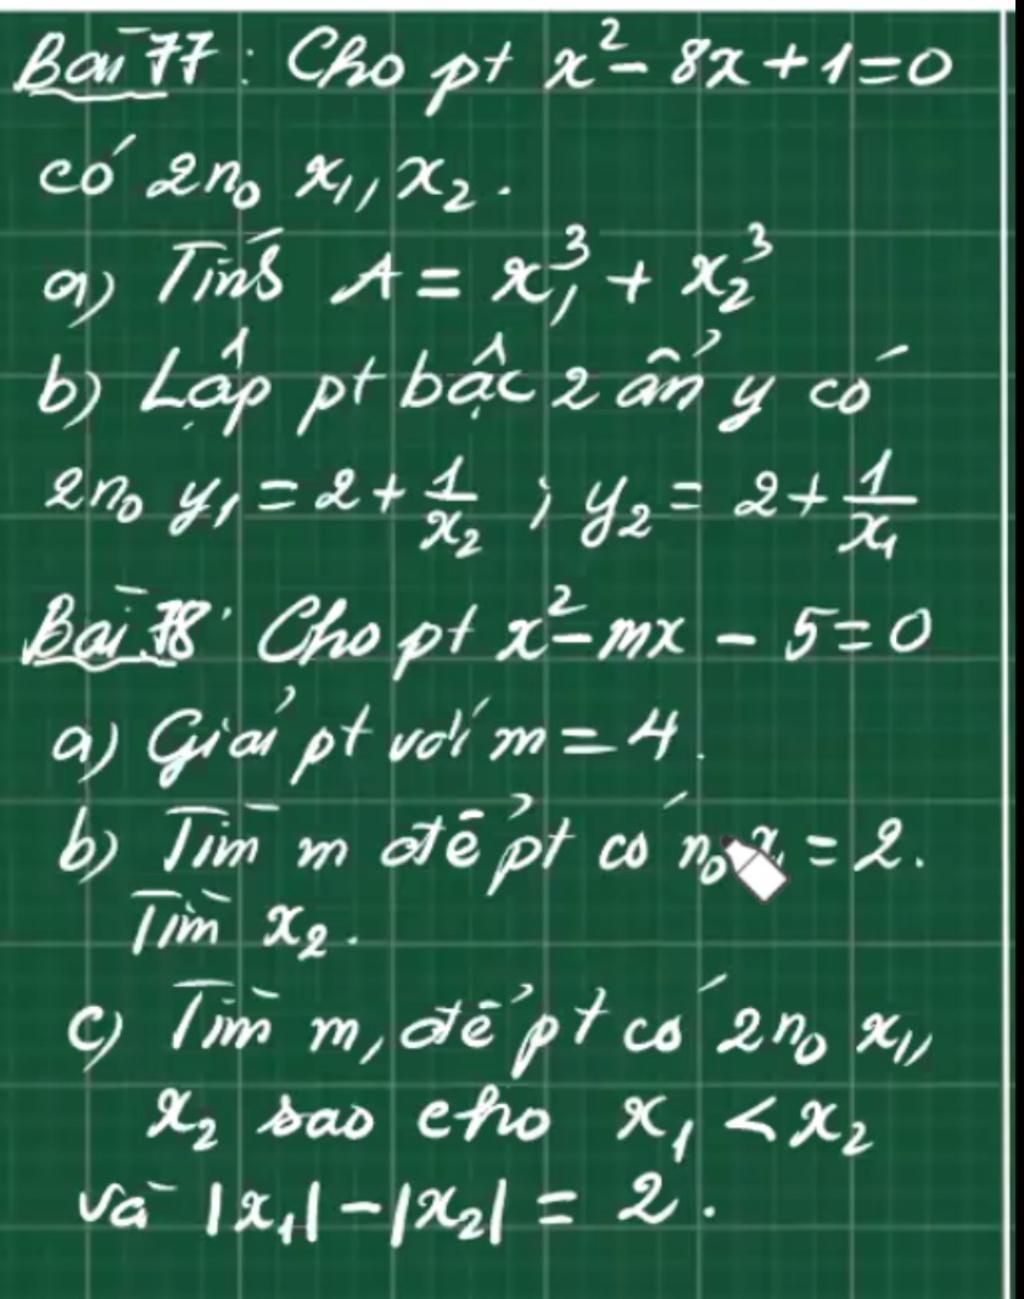 Bài 77: Cho pt x² - 8x + 1 = 0
có 2n₀ x₁, x₂.
a) Tính A = x₁³ + x₂³
b) Lập pt bậc 2 ẩn y có
2n₀ y₁ = 2 + 1/x₂ ; y₂ = 2 + 1/x₁
Bài 78: Cho pt x² - mx - 5 = 0
a) Giải pt với m = 4.
b) Tìm m để pt có n₀ = 2.
Tìm x₂.
c) Tìm m, để pt có 2n₀ x₁,
x₂ sao cho x₁ < x₂
và |x₁| - |x₂| = 2.